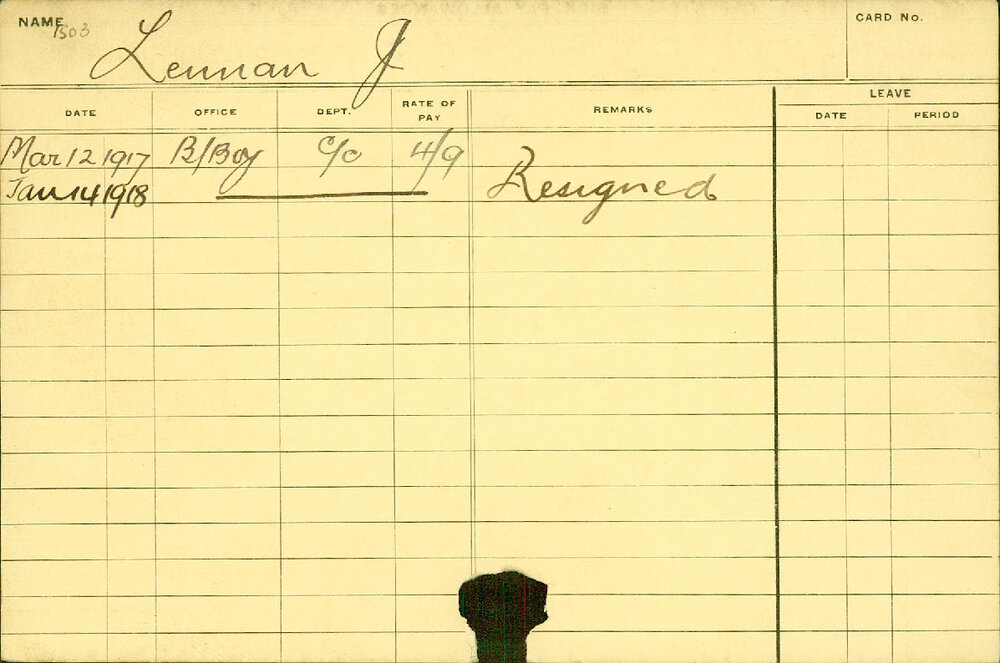 NAME 1503 Lennan J CARD No.
LEAVE
DATE OFFICE DEPT. RATE OF PAY REMARKS DATE PERIOD
Mar 12 1917 B/Boy C/O 4/9
Jan 14 1918 Resigned